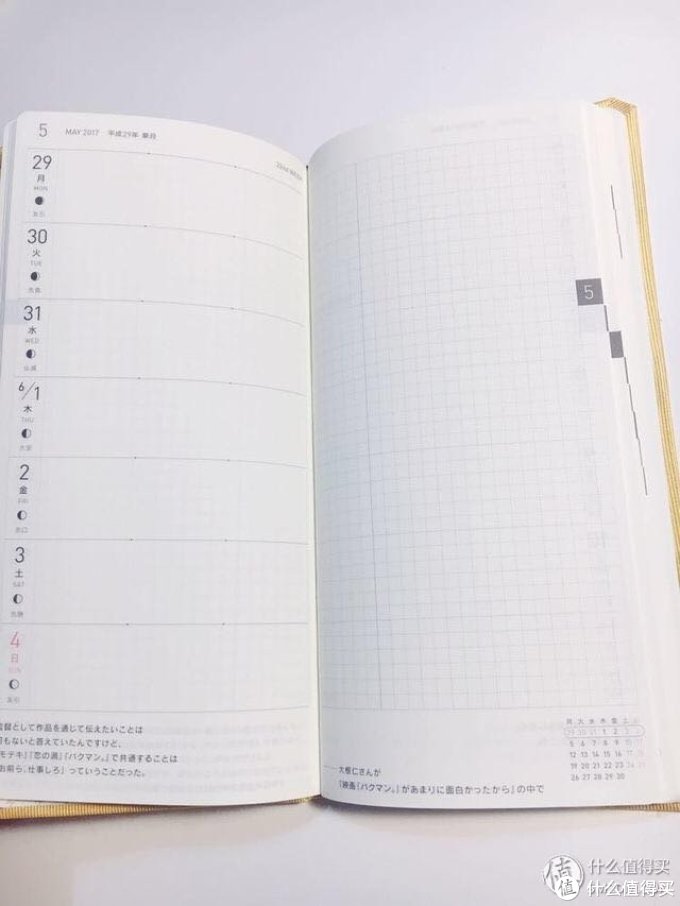 5 MAY 2017 平成29年 皐月
29
月
MON
友引
30
火
TUE
先負
31
水
WED
仏滅
6/1
木
THU
大安
2
金
FRI
赤口
3
土
SAT
先勝
4
日
SUN
友引
監督として作品を通じて伝えたいことは
何もないと答えていたんですけど、
『モテキ』『恋の渦』『バクマン。』で共通することは
「お前ら、仕事しろ」っていうことだった。
5
月 火 水 木 金 土 日
29 30 31 1 2 3 4
5 6 7 8 9 10 11
12 13 14 15 16 17 18
19 20 21 22 23 24 25
26 27 28 29 30
大根仁さんが
『映画『バクマン。』があまりに面白かったから』の中で
值 什么值得买
什么值得买